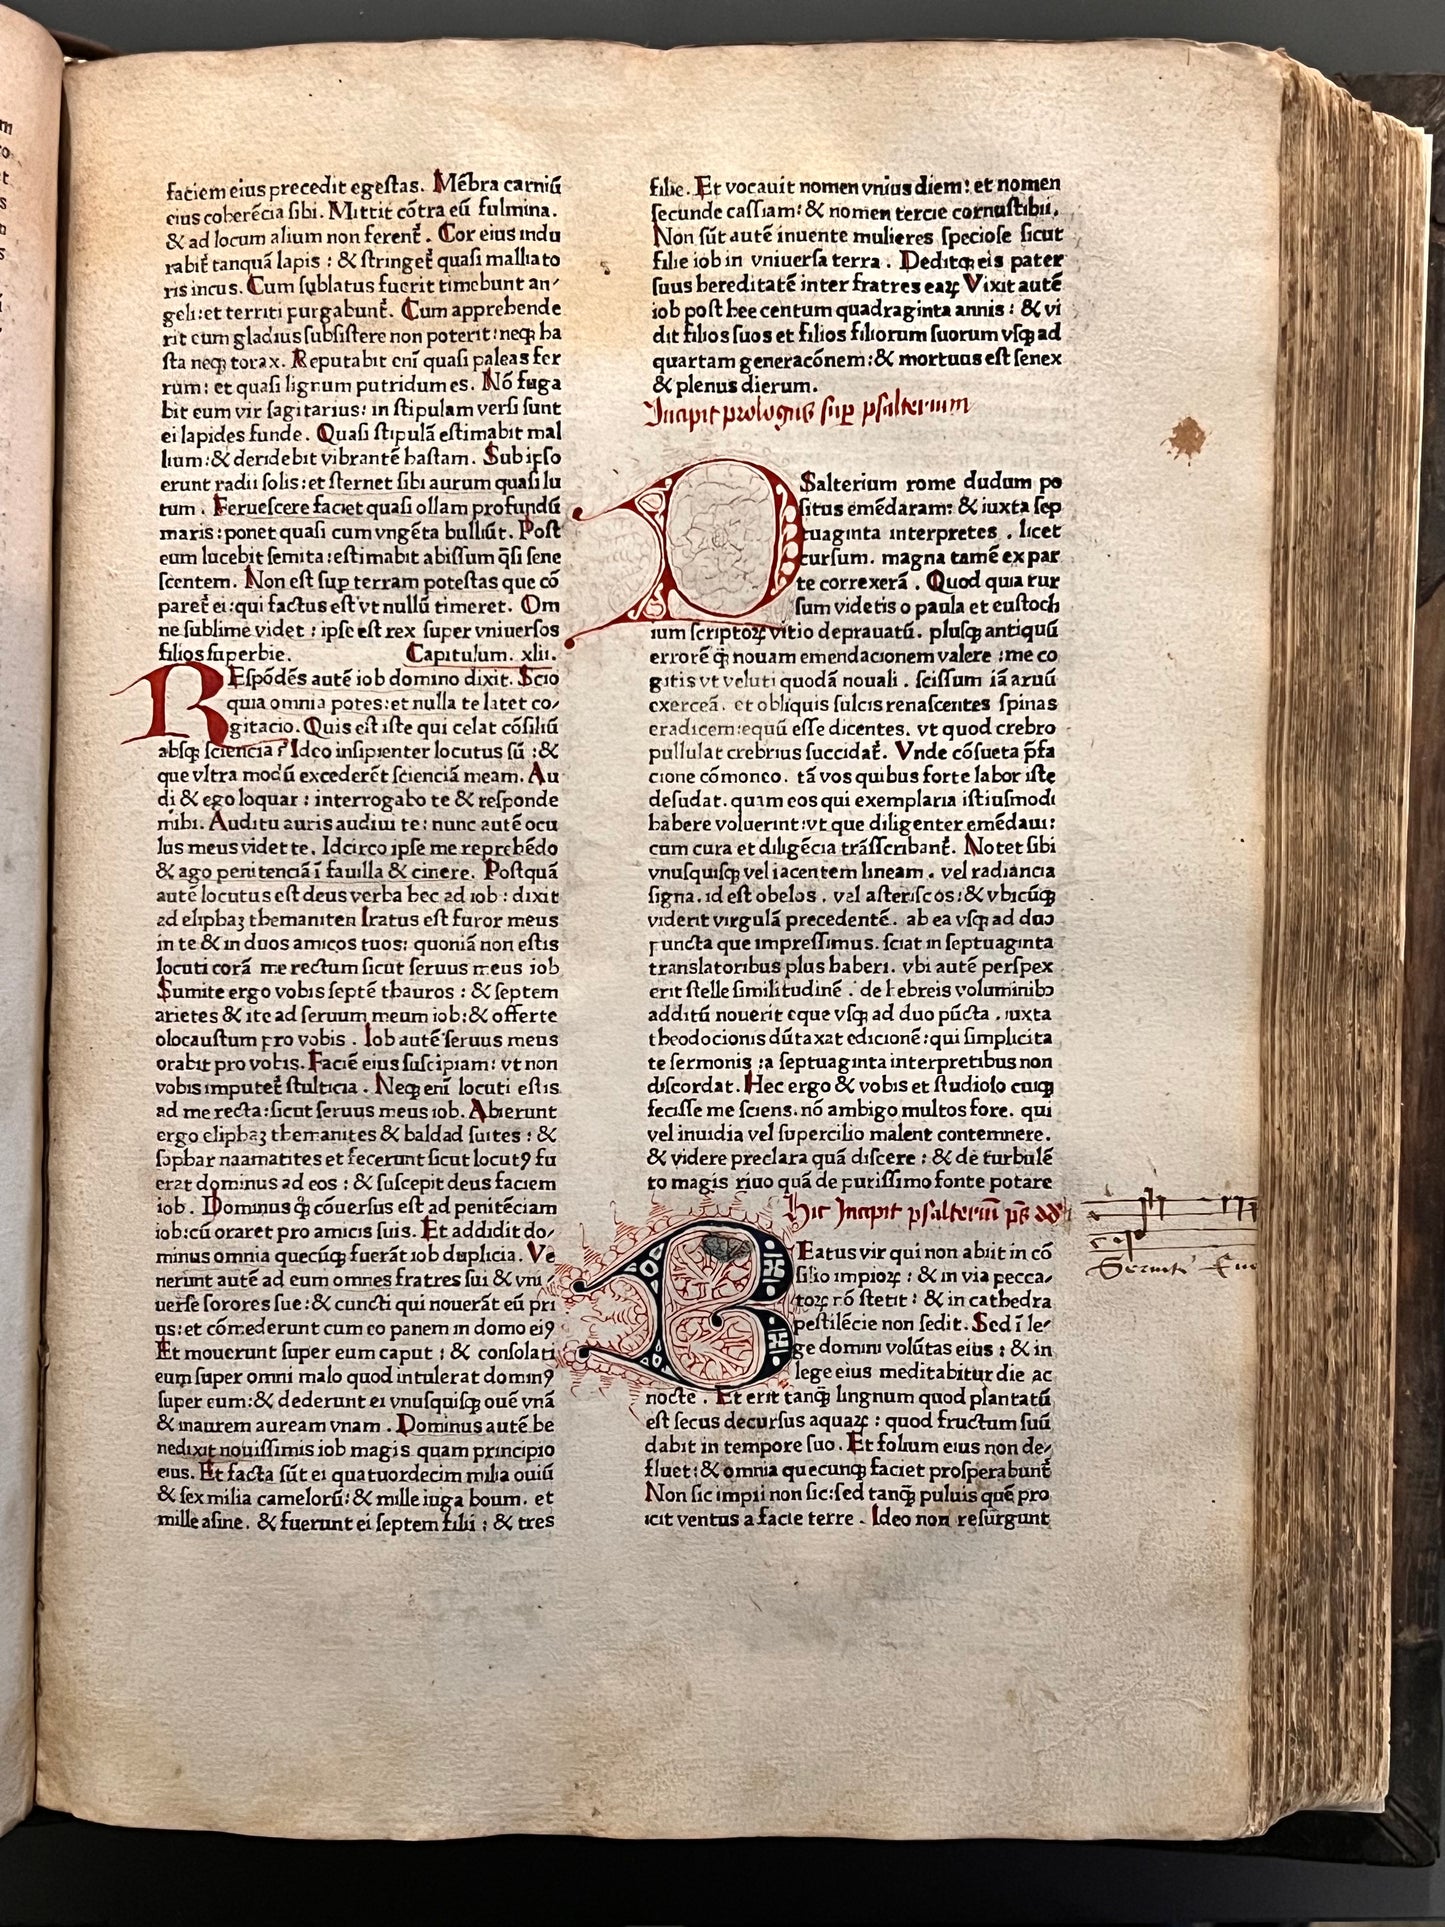 faciem eius precedit egestas. Mēbra carniū
eius coherēcia sibi. Mittit cōtra eū fulmina.
& ad locum alium non ferent᷑. Cor eius indu
rabit᷑ tanquā lapis : & stringet᷑ quasi malliato
ris incus. Cum sublatus fuerit timebunt an⸗
geli: et territi purgabunt᷑. Cum apprehende
rit eum gladius subsistere non poterit: neqꝫ ha
sta neqꝫ torax. Reputabit eni quasi paleas fer
rum: et quasi lignum putridum es. Nō fuga
bit eum vir sagitarius: in stipulam versi sunt
ei lapides funde. Quasi stipulā estimabit mal
lium: & deridebit vibrantē hastam. Sub ipso
erunt radii solis: et sternet sibi aurum quasi lu
tum. Feruescere faciet quasi ollam profundū
maris: ponet quasi cum vngēta bulliūt. Post
eum lucebit semita: estimabit abissum q̄si sene
scentem. Non est suꝑ terram potestas que cō
paret᷑ ei: qui factus est vt nullū timeret. Om
ne sublime videt : ipse est rex super vniuersos
filios superbie. Capitulum. xlii.
REspōdēs autē iob domino dixit. Scio
quia omnia potes: et nulla te latet co⸗
gitacio. Quis est iste qui celat cōsiliū
absqꝫ sciencia? Ideo insipienter locutus sū : &
que vltra modū excederēt scienciā meam. Au
di & ego loquar : interrogabo te & responde
mihi. Auditu auris audiui te: nunc autē ocu
lus meus videt te. Idcirco ipse me reprehēdo
& ago penitenciā ī fauilla & cinere. Postquā
autē locutus est deus verba hec ad iob : dixit
ad eliphaꝫ themaniten Iratus est furor meus
in te & in duos amicos tuos: quoniā non estis
locuti corā me rectum sicut seruus meus iob
Sumite ergo vobis septē thauros : & septem
arietes & ite ad seruum meum iob: & offerte
olocaustum pro vobis. Iob autē seruus meus
orabit pro vobis. Faciē eius suscipiam: vt non
vobis imputet᷑ stulticia. Neqꝫ eni locuti estis
ad me recta: sicut seruus meus iob. Abierunt
ergo eliphaꝫ themanites & baldad suites : &
sophar naamatites et fecerunt sicut locutꝰ fu
erat dominus ad eos : & suscepit deus faciem
iob. Dominus qꝫ cōuersus est ad penitēciam
iob: cū oraret pro amicis suis. Et addidit do⸗
minus omnia quecūqꝫ fuerāt iob duplicia. Ve
nerunt autē ad eum omnes fratres sui & vni⸗
uerse sorores sue: & cuncti qui nouerāt eū pri
us: et cōmederunt cum eo panem in domo eiꝰ
Et mouerunt super eum caput : & consolati
eum super omni malo quod intulerat dominꝰ
super eum: & dederunt ei vnusquisqꝫ ouē vnā
& inaurem auream vnam. Dominus autē be
nedixit nouissimis iob magis quam principio
eius. Et facta sūt ei quatuordecim milia ouiū
& sex milia camelorū: & mille iuga boum. et
mille asine. & fuerunt ei septem filii : & tres
filie. Et vocauit nomen vnius diem: et nomen
secunde cassiam: & nomen tercie cornustibii.
Non sūt autē inuente mulieres speciose sicut
filie iob in vniuersa terra. Deditqꝫ eis pater
suus hereditatē inter fratres eaꝝ Vixit autē
iob post hec centum quadraginta annis : & vi
dit filios suos et filios filiorum suorum vsqꝫ ad
quartam generacōnem: & mortuus est senex
& plenus dierum.
Incipit prologus suꝑ psalterium
PSalterium rome dudum po
situs emēdaram: & iuxta sep
tuaginta interpretes. licet
cursum. magna tamē ex par
te correxerā. Quod quia rur
sum videtis o paula et eustoch
ium scriptoꝝ vitio deprauatū. plusqꝫ antiquū
errorē q̄ nouam emendacionem valere : me co
gitis vt veluti quodā nouali. scissum iā aruū
exerceā. et obliquis sulcis renascentes spinas
eradicem: equū esse dicentes. vt quod crebro
pullulat crebrius succidat᷑. Vnde cōsueta p̄fa
cione cōmoneo. tā vos quibus forte labor iste
desudat. quam eos qui exemplaria istiusmodi
habere voluerint: vt que diligenter emēdaui:
cum cura et diligēcia trāsscribant᷑. Notet sibi
vnusquisqꝫ vel iacentem lineam. vel radiancia
signa. id est obelos. vel asteriscos: & vbicūqꝫ
viderit virgulā precedentē. ab ea vsqꝫ ad duo
puncta que impressimus. sciat in septuaginta
translatoribus plus haberi. vbi autē perspex
erit stelle similitudinē. de hebreis voluminibꝰ
additū nouerit eque vsqꝫ ad duo pūcta. iuxta
theodocionis dūtaxat edicionē: qui simplicita
te sermonis : a septuaginta interpretibus non
discordat. Hec ergo & vobis et studioso cuiqꝫ
fecisse me sciens. nō ambigo multos fore. qui
vel inuidia vel supercilio malent contemnere.
& videre preclara quā discere : & de turbulē
to magis riuo quā de purissimo fonte potare
Hic Incipit psalteriū
BEatus vir qui non abiit in cō
silio impioꝝ : & in via pecca⸗
toꝝ nō stetit : & in cathedra
pestilēcie non sedit. Sed ī le⸗
ge domini volūtas eius : & in
lege eius meditabitur die ac
nocte. Et erit tanqꝫ lingnum quod plantatū
est secus decursus aquaꝝ : quod fructum suū
dabit in tempore suo. Et folium eius non de⸗
fluet: & omnia quecunqꝫ faciet prosperabunt᷑
Non sic impii non sic: sed tanqꝫ puluis quē pro
icit ventus a facie terre. Ideo non resurgunt